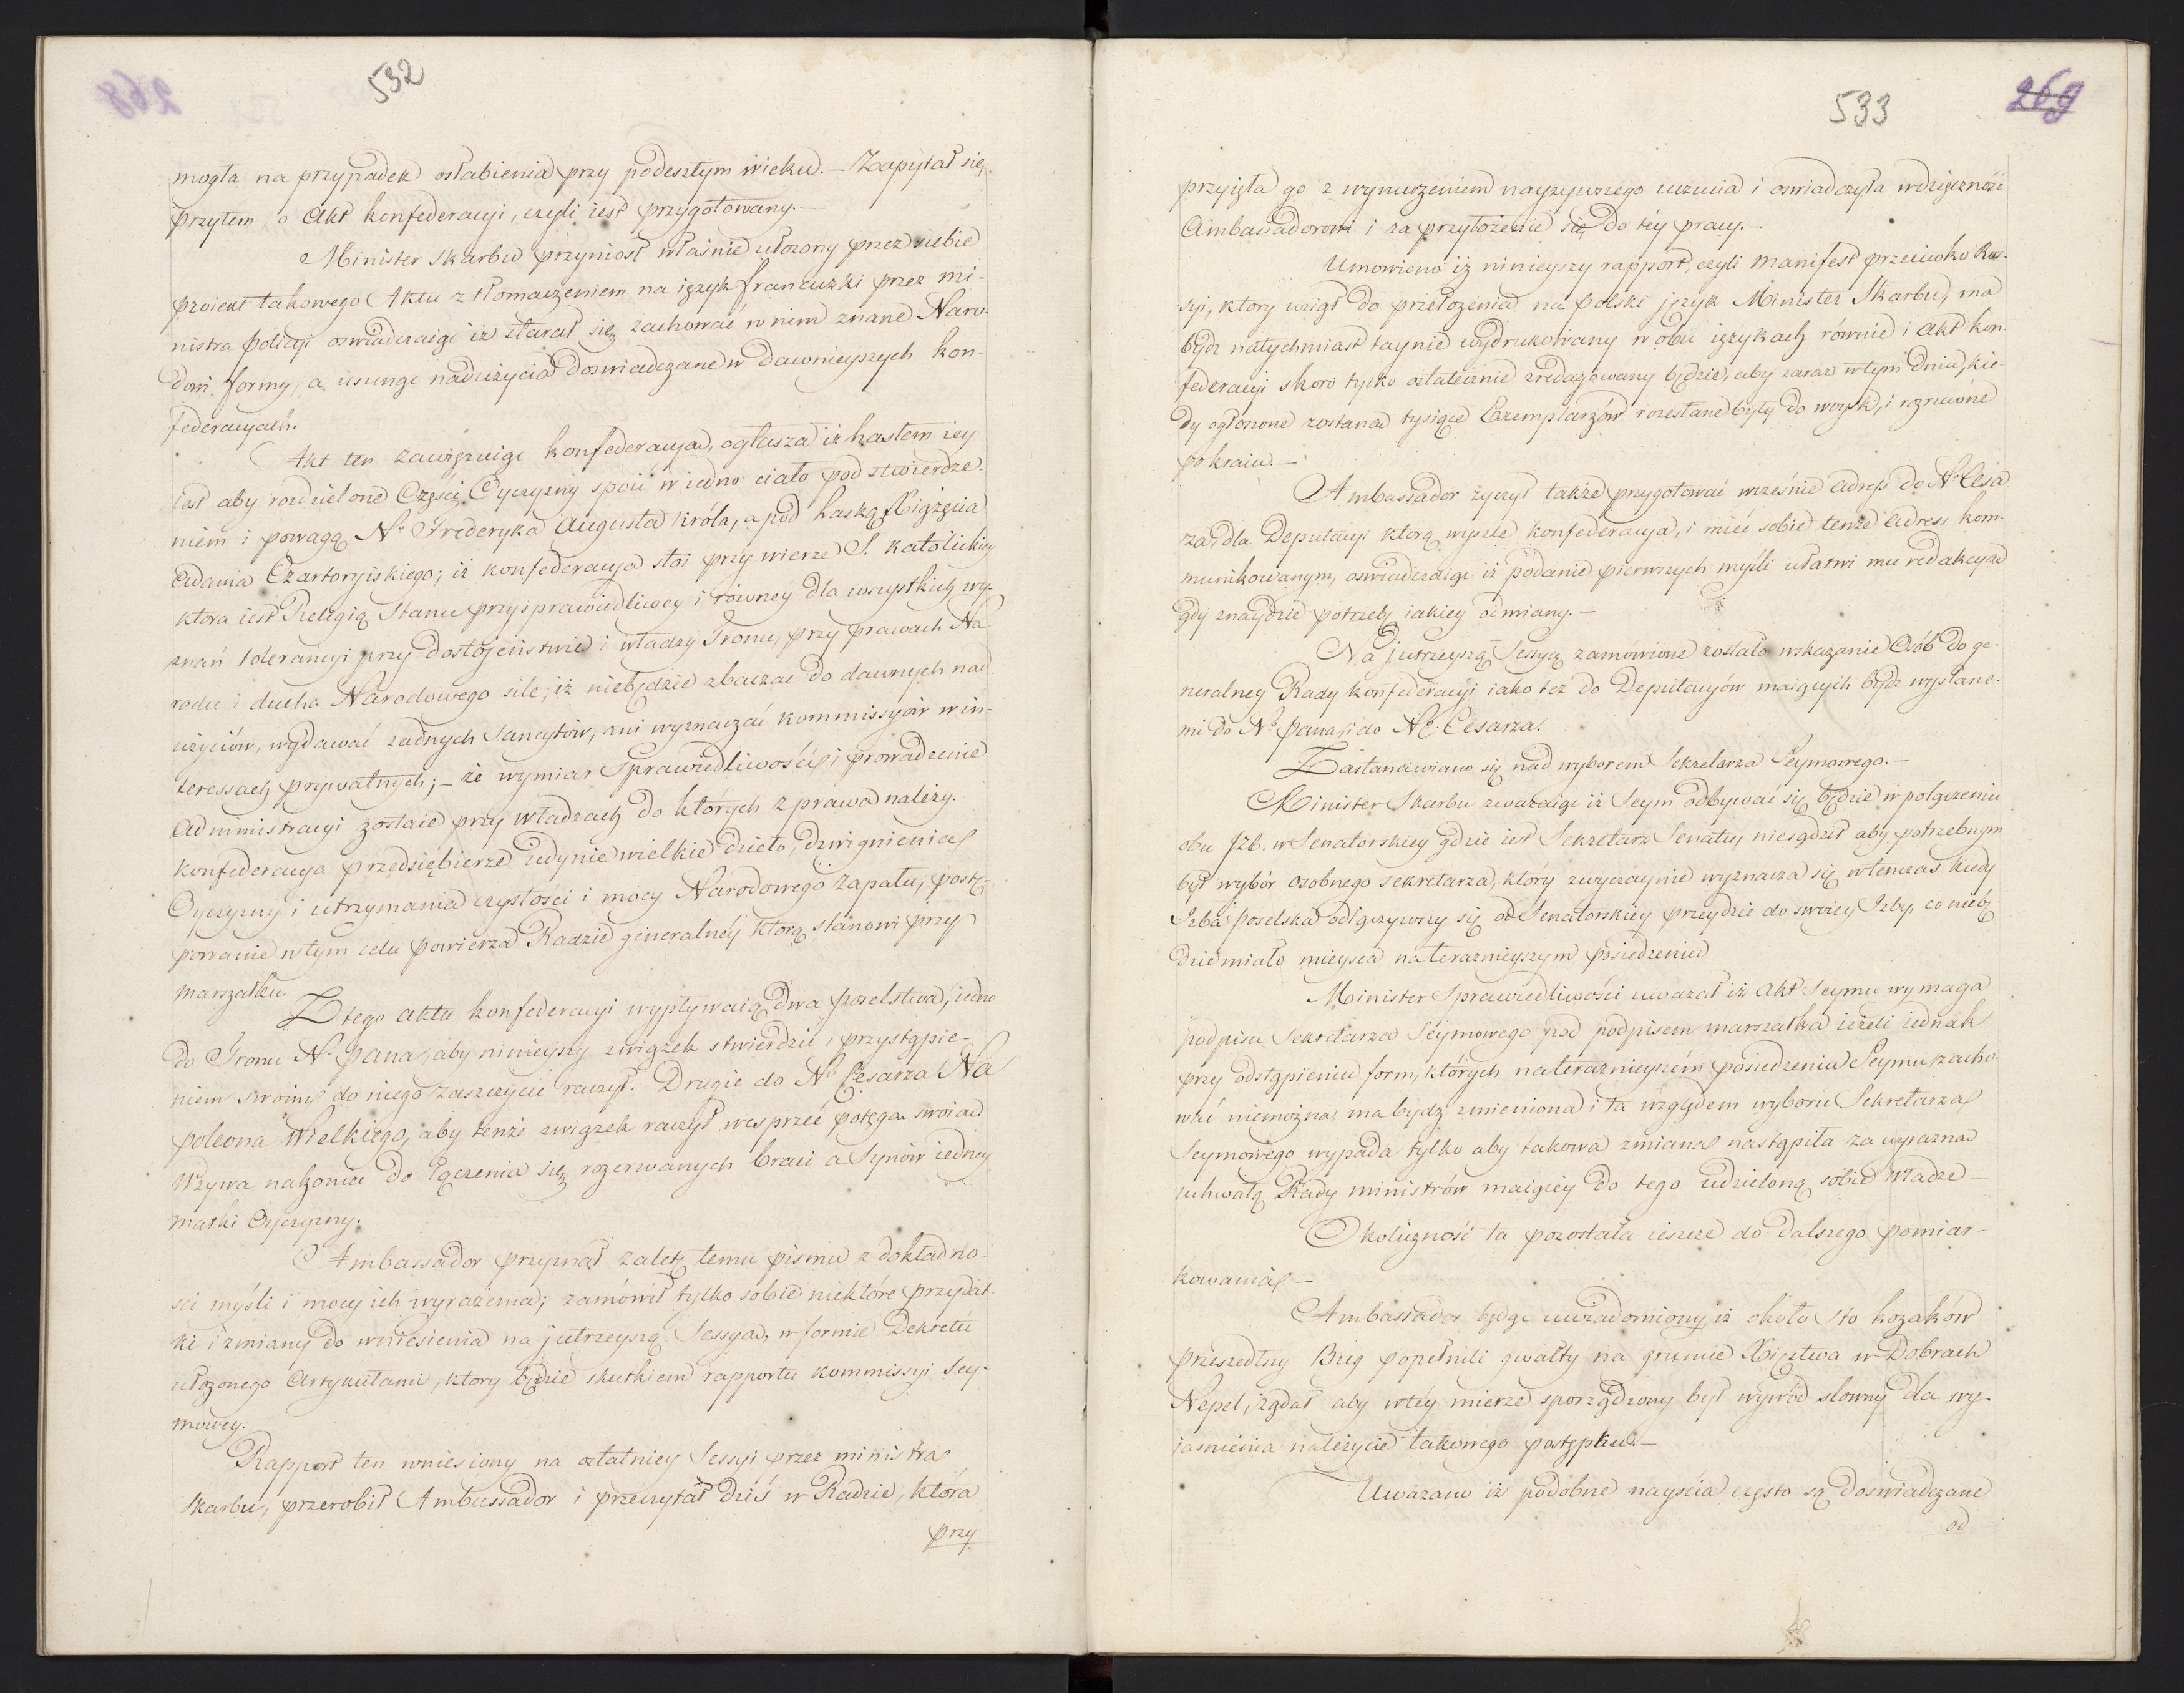 532
mogła na przypadek osłabienia przy podeszłym wieku. — Zapytał się
przytem, o Akt konfederacyi, czyli iest przygotowany. —
Minister Skarbu przyniosł właśnie ułożony przez siebie
proiekt takowego Aktu z tłomaczeniem na ięzyk francuzki przez mi-
nistra Policyi oswiadczaiąc iż starał się zachować w nim znane Naro-
dowi formy, a usunąc nadużycia doswiadczane w dawnieyszych kon-
federacyach.
Akt ten zawięzuiąc konfederacya, ogłasza iż hasłem iey
iest aby rozdzielone Części Oyczyzny spoić w iedno ciało pod stwierdze-
niem i powagą No Frederyka Augusta Króla, a pod laską Xiążęcia
Adama Czartoryiskiego; iż konfederacya stoi przy wierze S. katolickiey
ktora iest Religią Stanu przy sprawiedliwey i rowney dla wszystkich wy-
znań tolerancyi przy dostojeństwie i władzy Tronu, przy prawach Na-
rodu i ducha Narodowego sile; iż niebędzie zbaczac do dawnych nad-
użyciów, wydawać żadnych Sancytów, ani wyznaczać kommissyów w in-
teressach prywatnych; — że wymiar Sprawiedliwości i prowadzenie
Administracyi zostaie przy władzach do których z prawa należy.
Konfederacya przedsiębierze iedynie wielkie dzieło, dzwignienia
Oyczyzny i utrzymania czystości i mocy Narodowego Zapału, postę-
powanie w tym celu powierza Radzie generalnéy którą stanowi przy
marszałku.
Z tego Aktu konfederacyi wypływaią dwa poselstwa, iedno
do Tronu No Pana, aby ninieyszy związek stwierdzić i przystąpie-
niem swoim do niego zaszczycić raczył. Drugie do No Cesarza Na-
poleona Wielkiego, aby tenże związek raczył wesprzeć potęga swoia
Wzywa nakoniec do łączenia się rozerwanych braci a Synów iedney
matki Oyczyzny.
Ambassador przyznał zaletę temu pismu z dokładno-
ści myśli i mocy ich wyrażenia; zamówił tylko sobie niektóre przydat-
ki i zmiany do wniesienia na jutrzeyszą Sessya, w formie Dekretu
ułożonego Artykułami, ktory będzie skutkiem rapportu kommissyi Sey-
mowey.
Rapport ten wniesiony na ostatniey Sessyi przez ministra
Skarbu, przerobił Ambassador i przeczytał dziś w Radzie, która
przy
533
269
przyięła go z wynurzeniem nayżywszego uczucia i oswiadczyła wdzięczność
Ambassadorowi i za przyłożenie się do téy pracy. —
Umowiono iż ninieyszy rapport, czyli manifest przeciwko Ros-
syi, ktory wziął do przełożenia na polski język Minister Skarbu, ma
bydz natychmiast taynie wydrukowany w obu ięzykach równie i Akt kon-
federacyi skoro tylko ostatecznie zredagowany będzie, aby zaraz w tym dniu, kie-
dy ogłoszone zostana tysiące Exemplarzów rozesłane były do woysk, i rozrucone
po kraiu. —
Ambassador życzył także przygotować wcześnie Adress do No Cesa-
rza, dla Deputacyi ktorą wyszle konfederacya, i mieć sobie tenże Adress kom-
munikowanym, oswiadczaiąc iż podanie pierwszych myśli ułatwi mu redakcya
gdy znaydzie potrzebę iakiey odmiany. —
Na jutrzeyszą Sessyą zamówione zostało wskazanie Osób do ge-
neralney Rady konfederacyi iako też do Deputacyów maiących bydz wysłane-
mi do No Pana, i do No Cesarza.
Zastanawiano się nad wyborem Sekretarza Seymowego. —
Minister Skarbu zważaiąc iż Seym odbywać się będzie w połączeniu
obu Izb. w Senatorskiey gdzie iest Sekretarz Senatu, niesądził aby potrzebnym
był wybór osobnego sekretarza, który zwyczaynie wyznacza się wtenczas kiedy
Izba Poselska odłączywszy się od Senatorskiey przeydzie do swoiey Izby, co niebę-
dzie miało mieysca na terazniejszym posiedzeniu
Minister Sprawiedliwości uważał iż Akt Seymu wymaga
podpisu Sekretarza Seymowego pod podpisem marszałka ieżeli iednak
przy odstąpieniu form, których na terazniejszém posiedzeniu Seymu zacho-
wać niemożna, ma bydz zmieniona i ta względem wyboru Sekretarza
Seymowego wypada tylko aby takowa zmiana nastąpiła za wyrazną
uchwałą Rady ministrów maiącéy do tego udzieloną sobie władze —
Okoliczność ta pozostała ieszcze do dalszego pomiar-
kowania —
Ambassador będąc uwiadomiony, iż około sto kozaków
przeszedłszy Bug popełnili gwałty na gruncie Xięztwa w Dobrach
Nepel, żądał aby w téy mierze sporządzony był wywód słowny dla wy-
iasnienia należycie takowego postępku. —
Uważano iż podobne nayscia często są doswiadczane
od